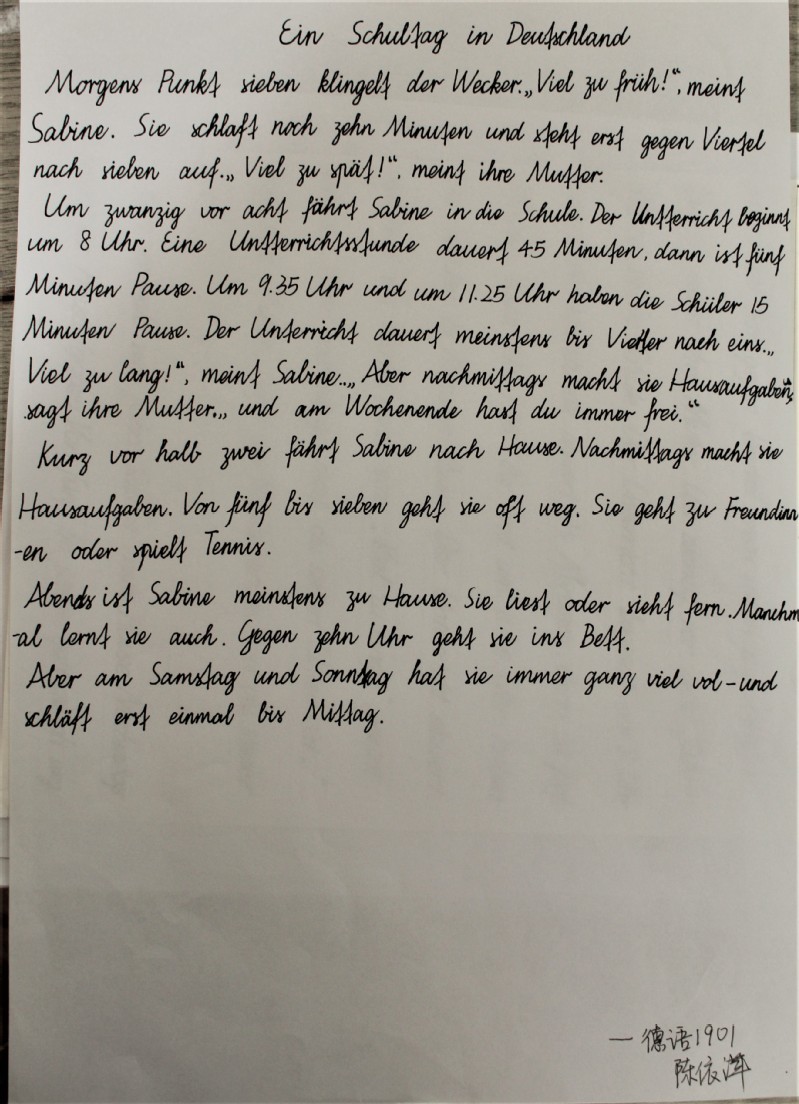 Ein Schultag in Deutschland
Morgens Punkt sieben klingelt der Wecker.„Viel zu früh!“, meint
Sabine. Sie schlaft noch zehn Minuten und steht erst gegen Viertel
nach sieben auf.„ Viel zu spät!“. meint ihre Mutter.
Um zwanzig vor acht fährt Sabine in die Schule. Der Unterricht beginnt
um 8 Uhr. Eine Unterrichtsstunde dauert 45 Minuten, dann ist fünf
Minuten Pause. Um 9.35 Uhr und um 11.25 Uhr haben die Schüler 15
Minuten Pause. Der Unterricht dauert meinstens bis Viertler nach eins.„
Viel zu lang!“, meint Sabine.„ Aber nachmittags macht sie Hausaufgaben“,
sagt ihre Mutter.„ und am Wochenende hast du immer frei.“
Kurz vor halb zwei fährt Sabine nach Hause. Nachmittags macht sie
Hausaufgaben. Von fünf bis sieben geht sie oft weg. Sie geht zu Freundinn
-en oder spielt Tennis.
Abends ist Sabine meinstens zu Hause. Sie liest oder sieht fern. Manchm
-al lernt sie auch. Gegen zehn Uhr geht sie ins Bett.
Aber am Samstag und Sonntag hat sie immer ganz viel vol-und
schläft erst einmal bis Mittag.
一 德语1901
陈依萍